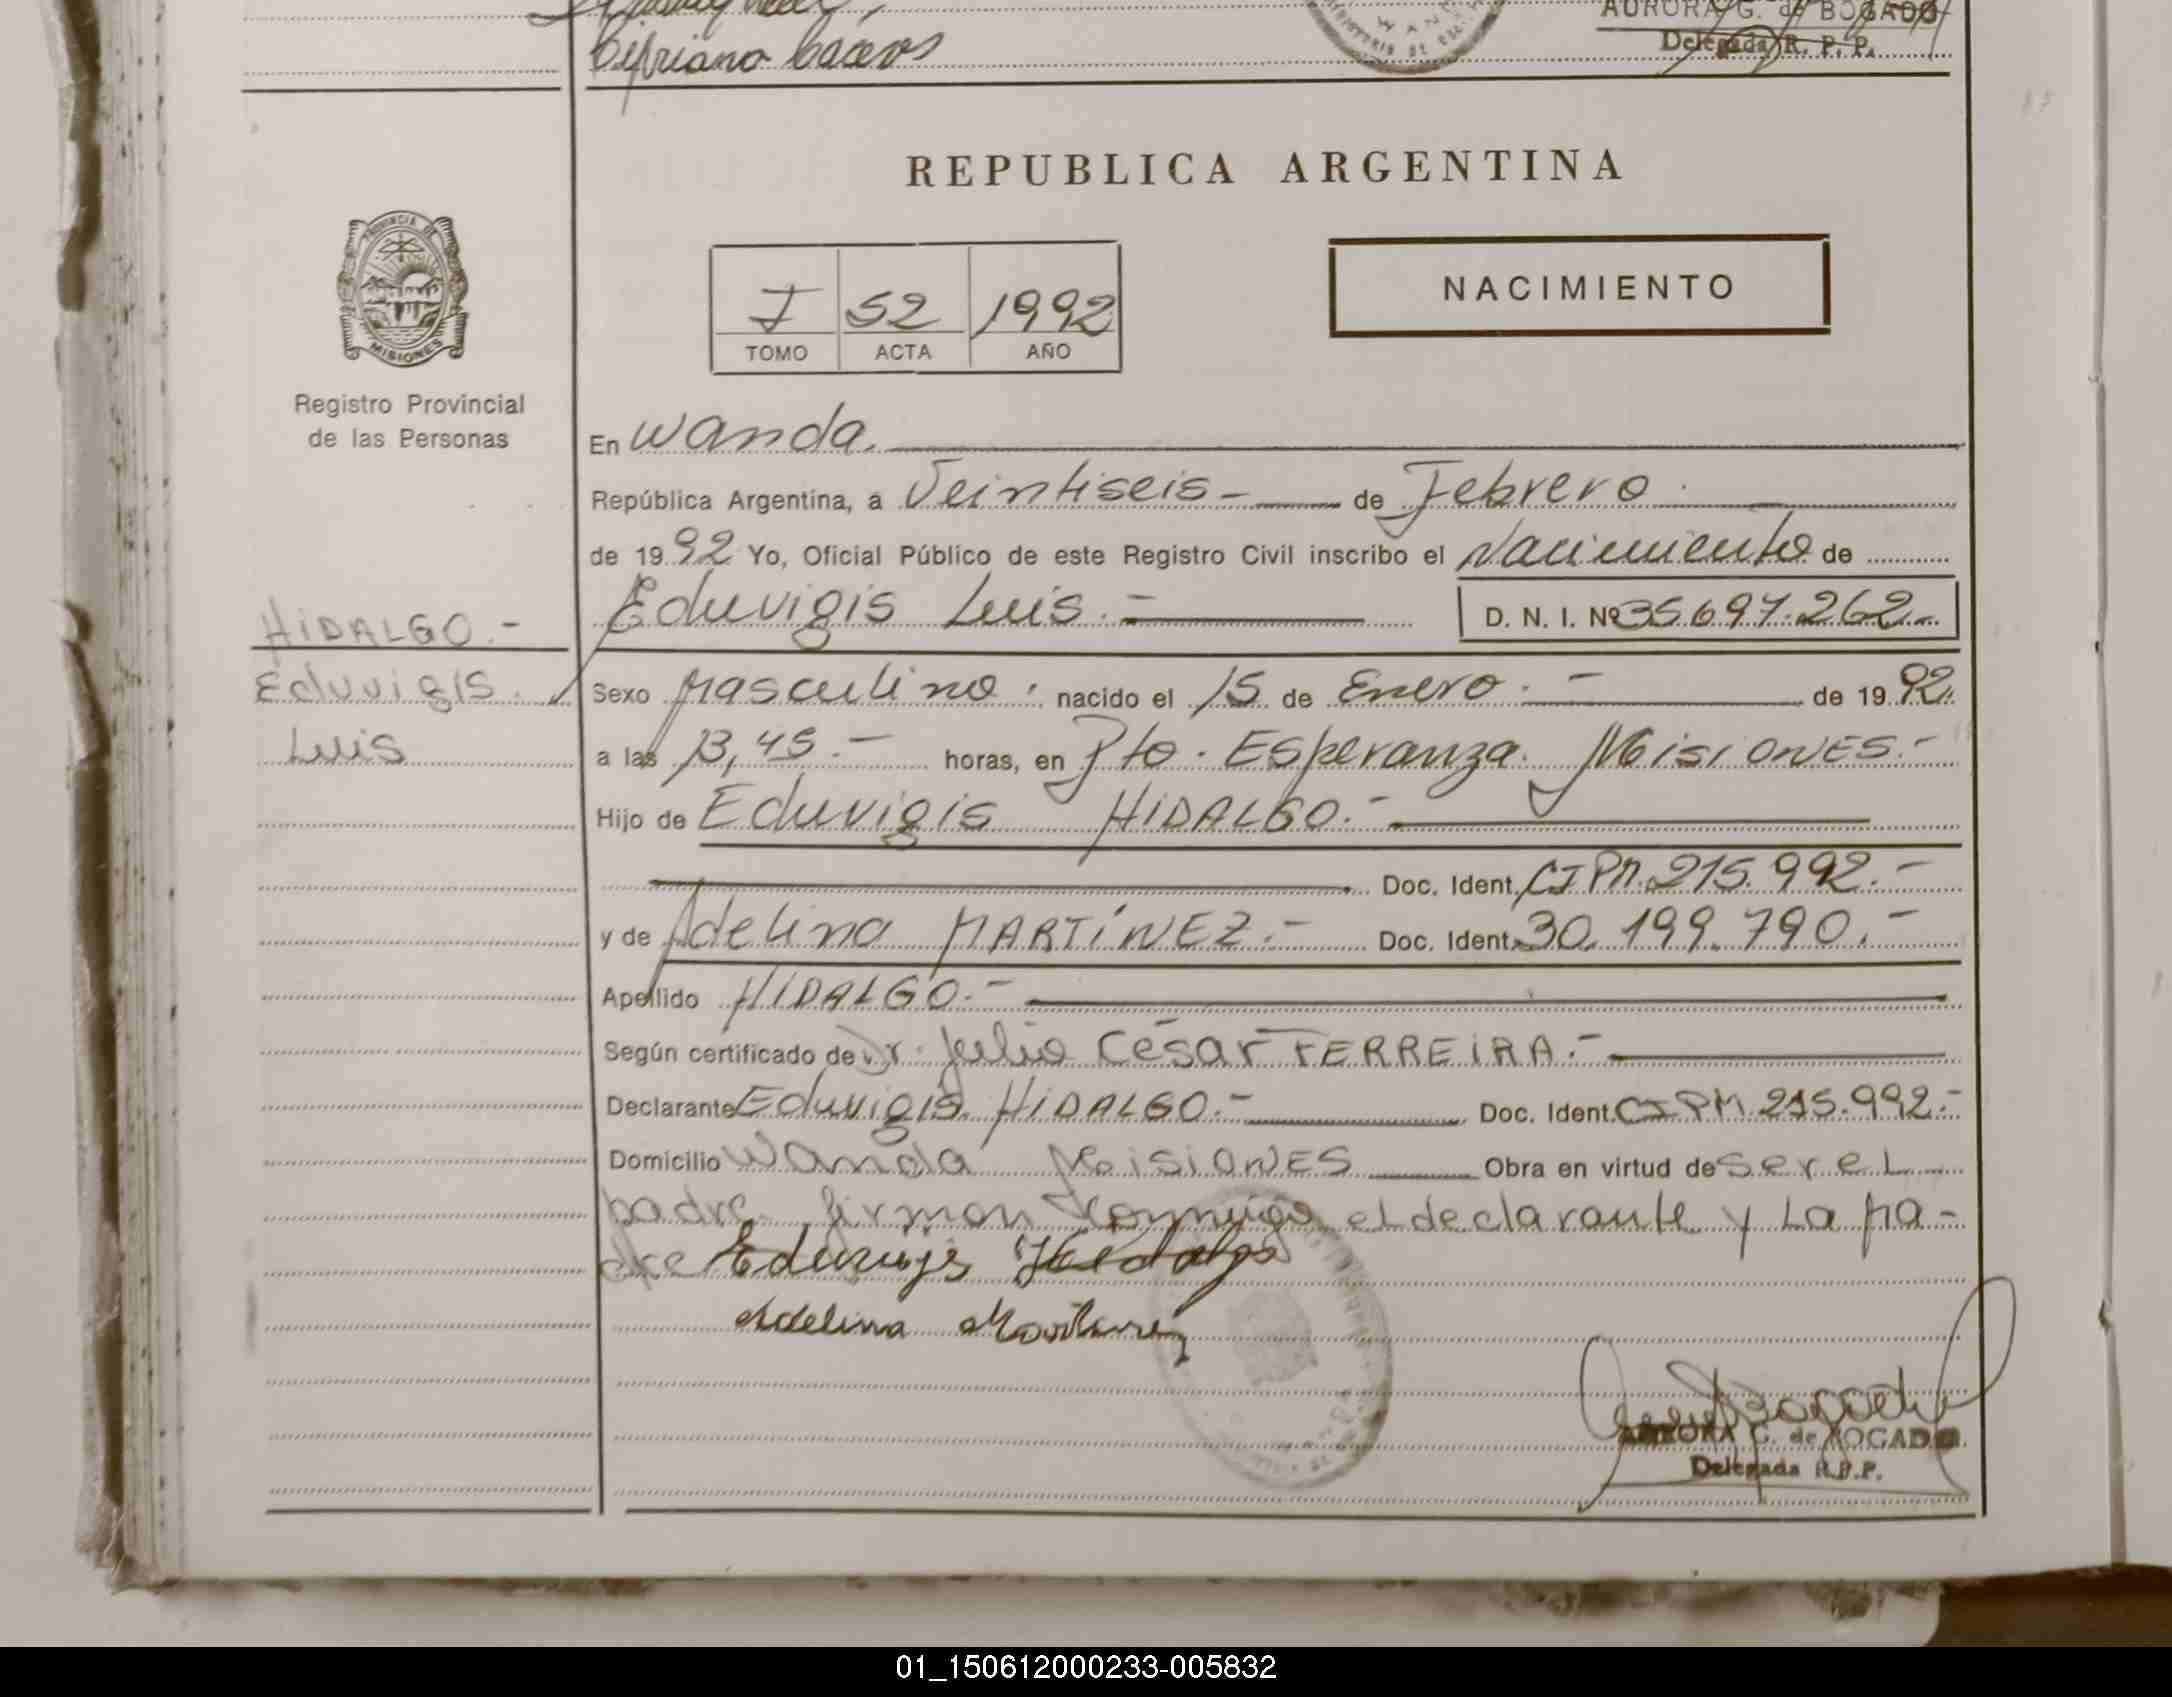 Cipriano
AURORA G. de BOGADO
Delegada R. P. P.
REPUBLICA ARGENTINA
PROVINCIA DE
MISIONES
Registro Provincial
de las Personas
I 52 1992
TOMO ACTA AÑO
NACIMIENTO
En Wanda.
República Argentina, a Veintiseis - de Febrero.
de 1992 Yo, Oficial Público de este Registro Civil inscribo el Nacimiento de
Eduvigis Luis. - D. N. I. Nº 35.697.262-
HIDALGO.-
Eduvigis.
Luis
Sexo Masculino. nacido el 15 de Enero. - de 1992.
a las 13,45.- horas, en Pto. Esperanza. Misiones.-
Hijo de Eduvigis HIDALGO.-
Doc. Ident. CIPM. 215.992.-
y de Adelina MARTíNEZ.- Doc. Ident. 30.199.790.-
Apellido HIDALGO.-
Según certificado de Dr. Julio César FERREIRA.-
Declarante Eduvigis HIDALGO.- Doc. Ident. CIPM 215.992.-
Domicilio Wanda Misiones Obra en virtud de ser el
padre firman conmigo el declarante y la ma-
dre Eduvigis Hidalgo
Adelina Martinez
AURORA G. de BOGADO
Delegada R.P.P.
01_150612000233-005832